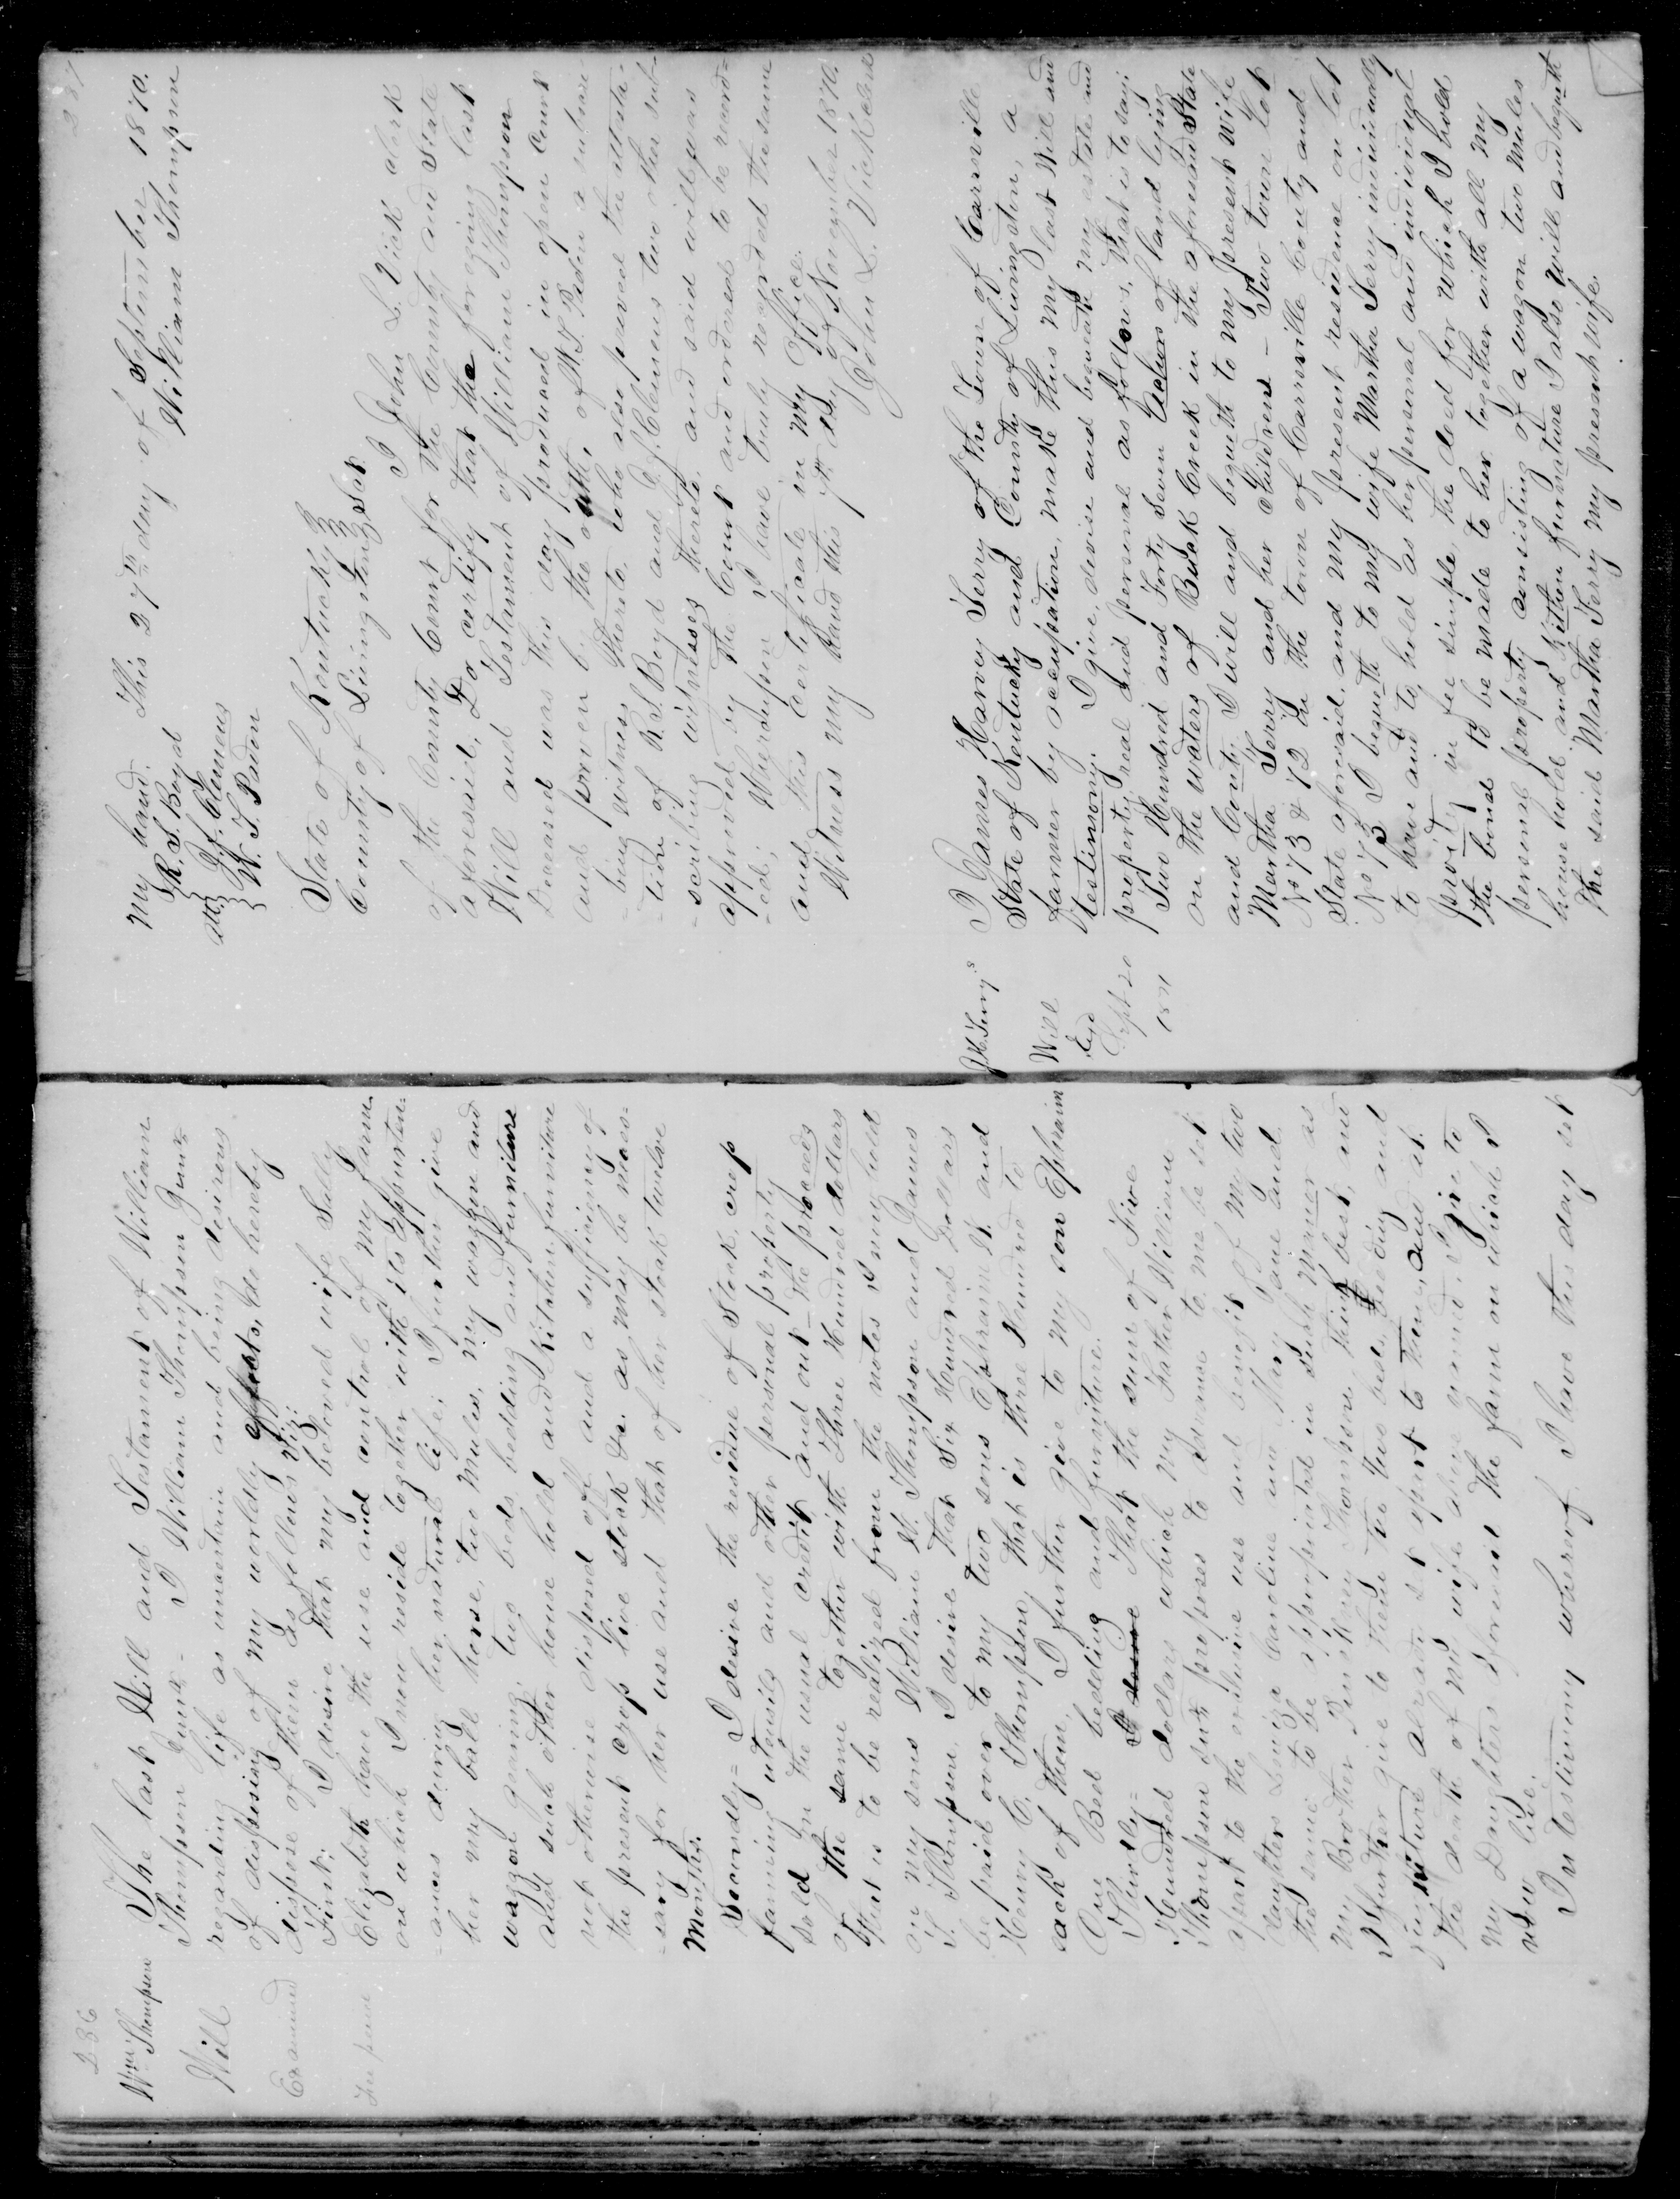 236
Wm Thompson
Will
Examined
Fee paid
The last Will and Testament of William
Thompson Senr - I William Thompson Senr
regarding life as uncertain and being desirous
of disposing of my worldly effects, do hereby
dispose of them as follows viz:
First: I desire that my beloved wife Sally
Elizabeth have the use and control of my farm
on which I now reside together with its appurten=
-ances during her natural life; I further give
her my ball horse, two mules, my waggon and
waggon gearing; two beds bedding and furniture
and such other house hold and kitchen furniture
not otherwise disposed off and a sufficiency of
the present crop live stock &c. as may be neces=
-sary for her use and that of her stock twelve
Months.
Secondly= I desire the residue of Stock, crop
farming utensils and other personal property
sold on the usual credit and out the proceeds
of the same together with Three Hundred dollars
that is to be realized from the notes I may hold
on my sons William H. Thompson and James
S. Thompson, I desire that Six Hundred Dollars
be paid over to my two sons Ephraim H. and
Henry C. Thompson, that is Three Hundred to
each of them, I further give to my son Ephraim
One Bed bedding and furniture.
Thirdly= I desire That the sum of Five
Hundred dollars which my Father William
Thompson Senr proposes to advance to me be set
apart to the exclusive use and benefit of my two
daughters Louiza Caroline and Mary Jane and
the same to be appropriated in such manner as
my Brother Pinckney Thompson think best, and
I further give to them two beds bedding and
furniture already set apart to them, and at
the death of my wife above named I give to
my Daughters aforesaid the farm on which I
now live.
In testimony whereof I have this day set
237
my hand. This 27th day of September 1870.
William Thompson
Att.
R. S. Boyd
D. J. Clemens
W. S. Paden
State of Kentucky
County of Livingston Sct.
I John L. Vick clerk
of the County Court for the County and State
aforesaid, Do certify that the foregoing last
Will and Testament of William Thompson
Deceased was this day produced in open Court
and proven by the oath, of W. S. Paden a subscri-
-bing witness thereto who also proved the attesta-
-tion of R. S. Boyd and D. J. Clemens two other sub-
-scribing witnesses thereto, and said will was
approved by the Court and ordered to be record=
-ed; Whereupon I have truly recorded the same
and this certificate in my office.
Witness my hand this 7th day of November 1870.
John L. Vick Clerk
J H Terry's
Will
Sept 20
1871
I James Harvey Terry of the Town of Carrsville
State of Kentucky and County of Livingston, a
farmer by occupation, make this my last Will and
testimony. I give, devise and bequeath my estate and
property, real and personal as follows, that is to say:
Two Hundred and Forty Seven Achors of land lying
on the waters of Buck Creek in the aforesaid State
and County I will and bequeth to my present wife
Martha Terry and her childrens - Two town Lots
No 73 & 72 in the town of Carrsville County and
State aforesaid, and my present residence on Lot
No 73 I bequeth to my wife Martha Terry individually
to have and to hold as her personal and individual
proverty in fee simple, the deed for which I hold
the bond to be made to her together with all my
personal property consisting of a wagon two mules
house hold and kitchen furnature I also will and bequeth
the said Martha Terry my present wife.